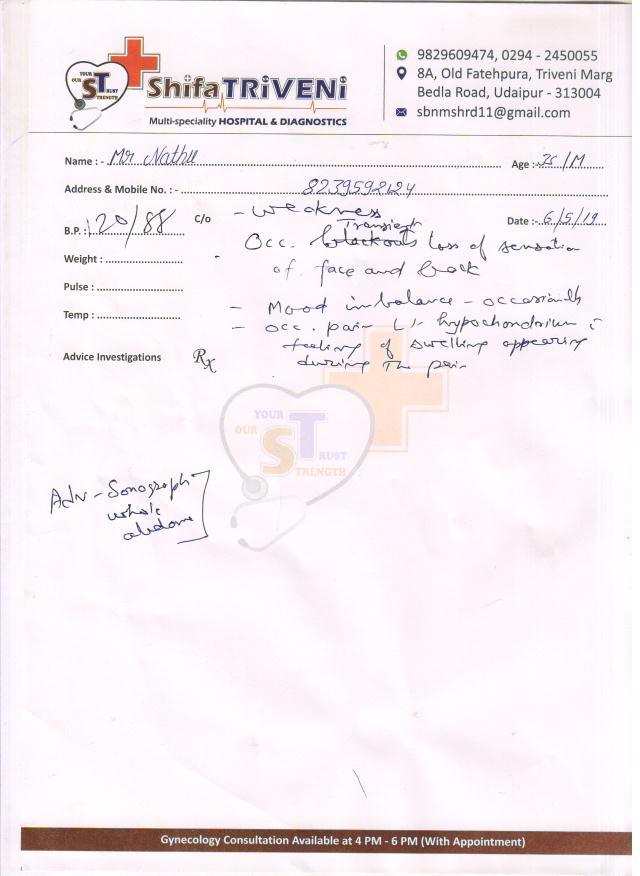 YOUR
OUR ST RUST
STRENGTH
ShifaTRiVENi
Multi-speciality HOSPITAL & DIAGNOSTICS
9829609474, 0294 - 2450055
8A, Old Fatehpura, Triveni Marg
Bedla Road, Udaipur - 313004
sbnmshrd11@gmail.com
Name : - Mr Nathu Age :- 35/M
Address & Mobile No. : - 8239598124
B.P. : 120/88 C/o - weakness Date :- 6/5/19
Transient
Occ. blackouts loss of sensation
of face and back
Weight :
Pulse :
- Mood imbalance - occasionally
Temp : - occ. pain L/- hypochondrium c̄
feeling of swelling appearing
during the pain
Advice Investigations Rx
YOUR
OUR ST RUST
TRENGTH
Adv - Sonograph
whole
abdome
Gynecology Consultation Available at 4 PM - 6 PM (With Appointment)